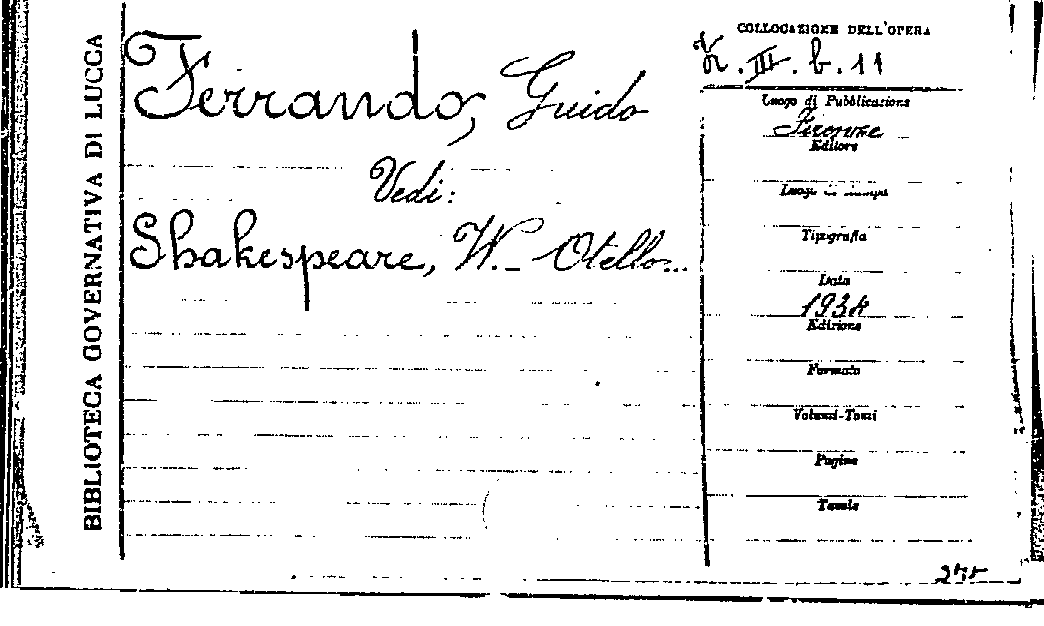 BIBLIOTECA GOVERNATIVA DI LUCCA
Ferrando, Guido
Vedi:
Shakespeare, W. - Otello...
COLLOCAZIONE DELL'OPERA
III. b. 11
Luogo di Pubblicazione
Firenze
Editore
Luogo di stampa
Tipografia
Data
1934
Edizione
Formato
Volumi-Tomi
Pagine
Tavole